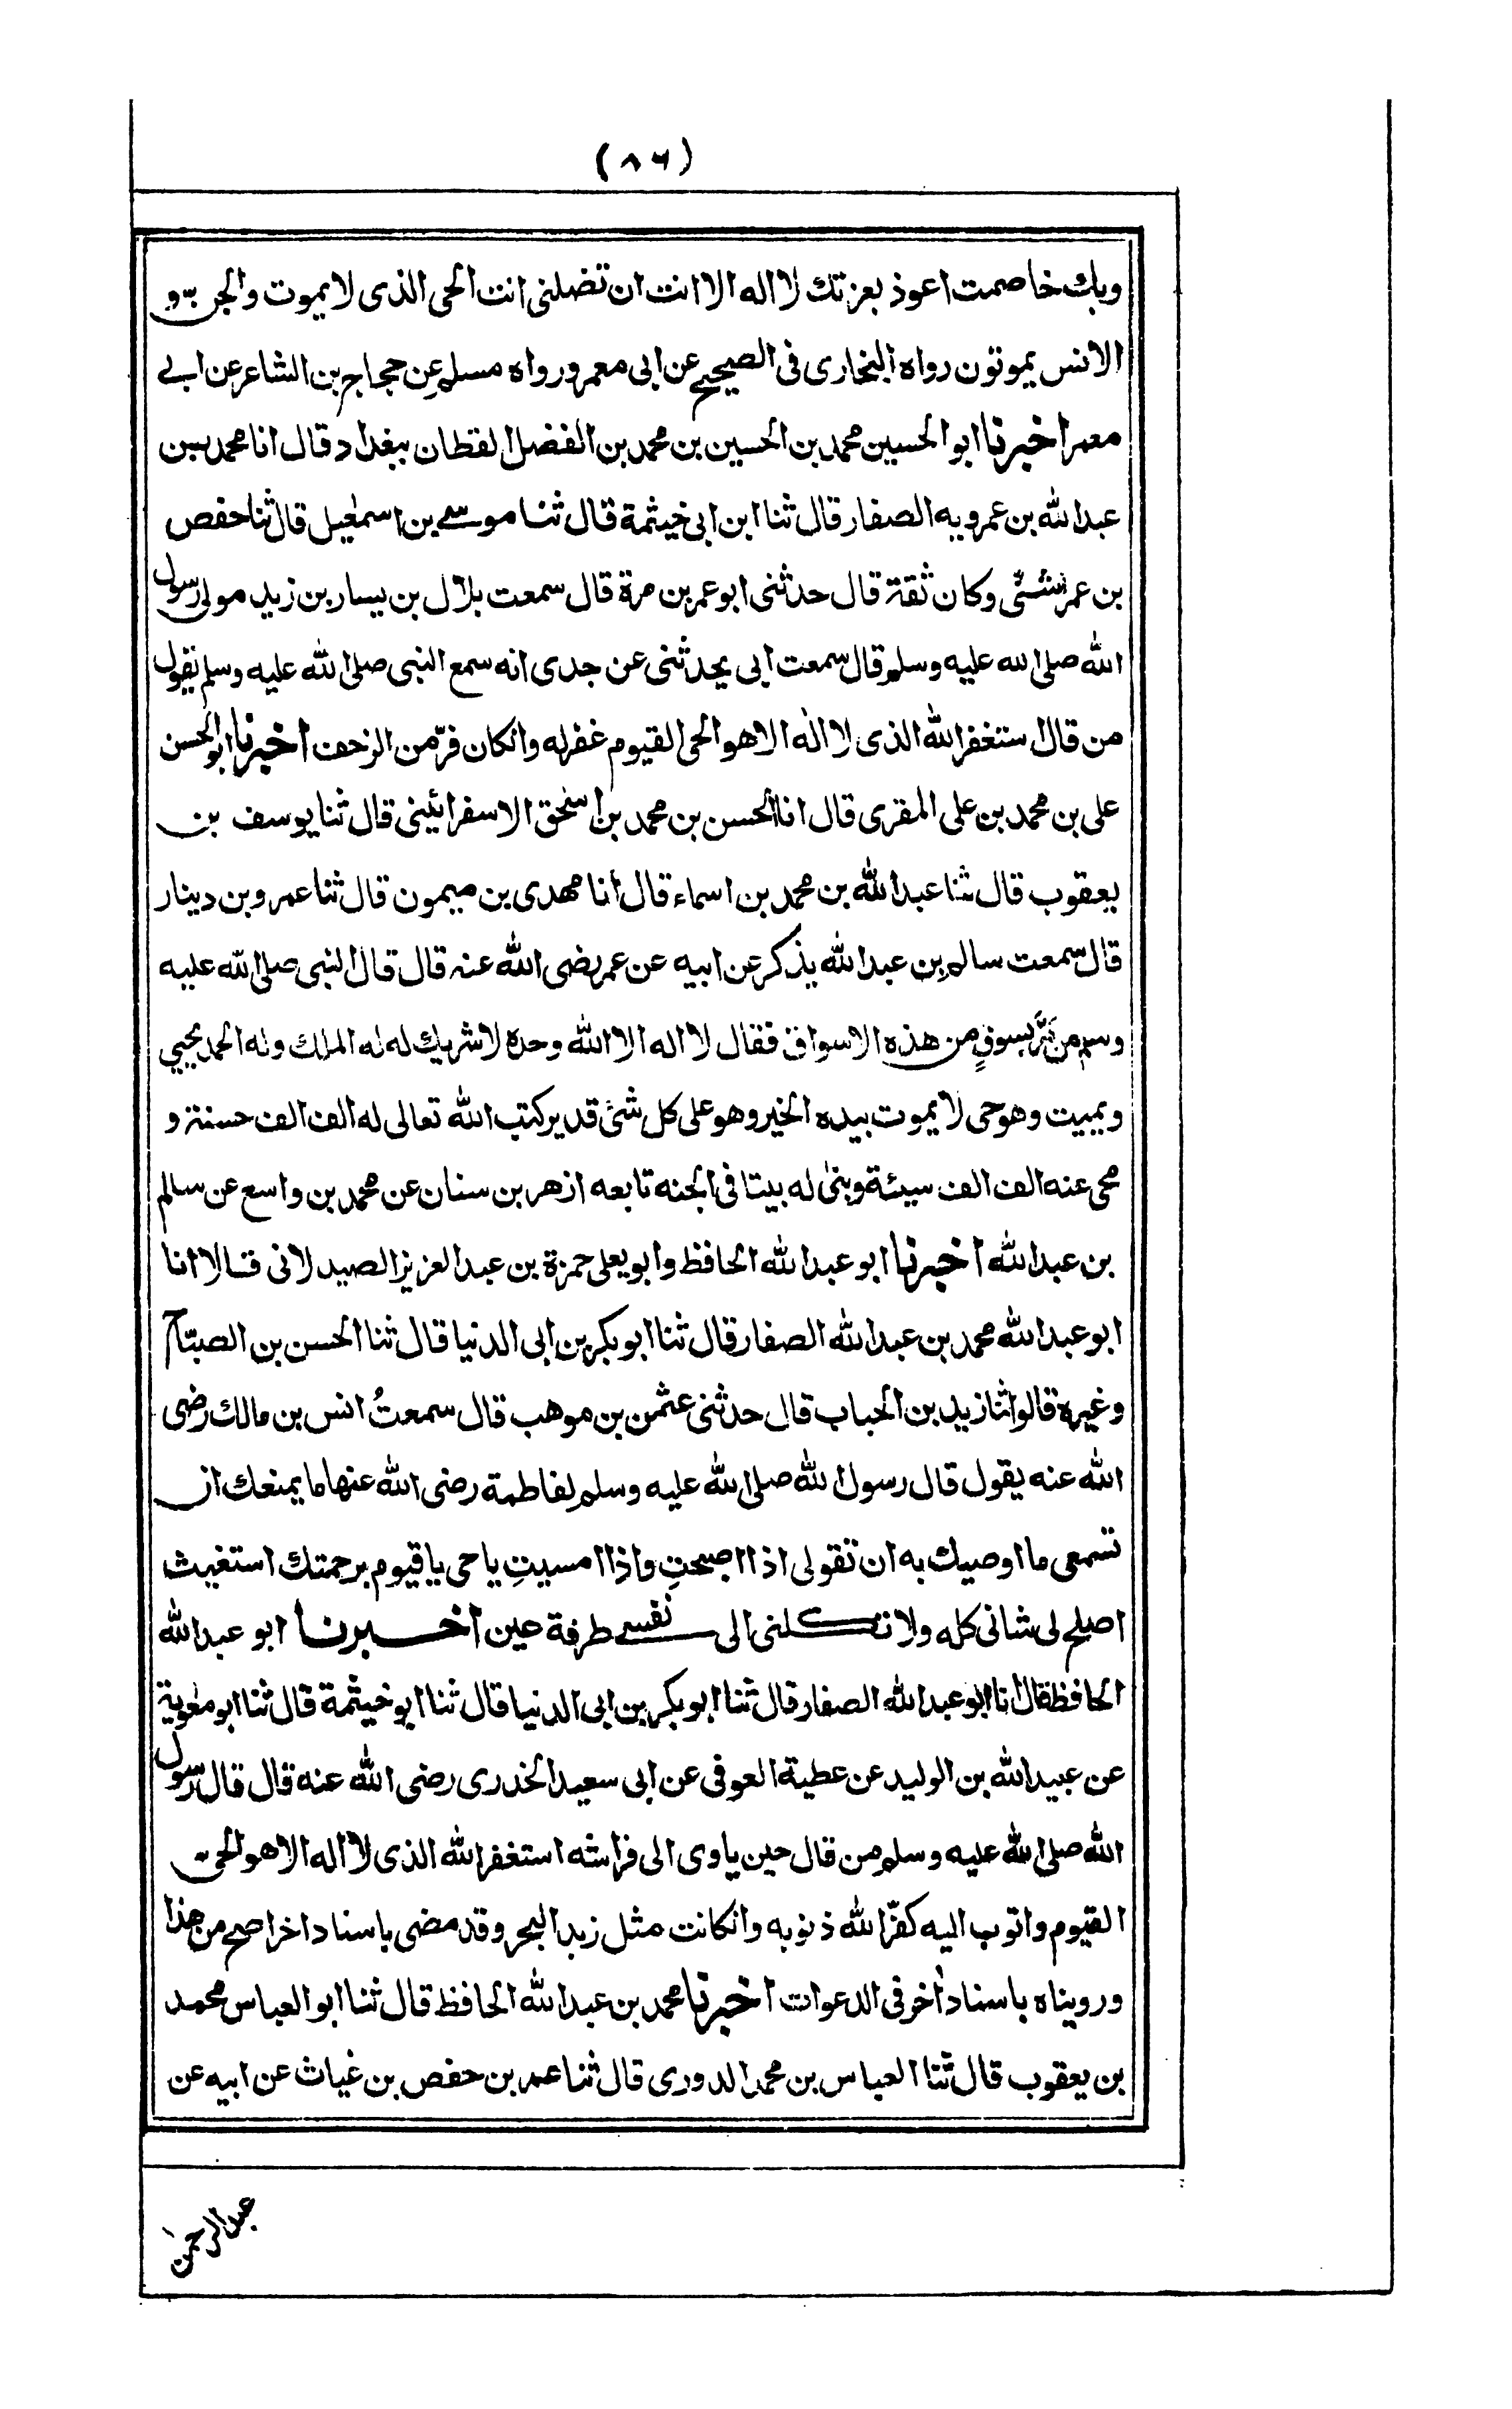 (۸۶)
وبك خاصمت اعوذ بعزتك لا اله الا انت ان تضلنى انت الحى الذى لا يموت والجن و
الانس يموتون رواه البخارى فى الصحيح عن ابى معمر ورواه مسلم عن حجاج بن الشاعر عن ابے
معمر اخبرنا ابو الحسين محمد بن الحسين بن محمد بن الفضل القطان ببغداد قال انا محمد بن
عبد الله بن عمرويه الصفار قال ثنا ابن ابى خيثمة قال ثنا موسے بن اسمٰعيل قال ثنا حفص
بن عمر الشنّى وكان ثقة قال حدثنى ابو عمر بن مرة قال سمعت بلال بن يسار بن زيد مولى رسول
الله صلى الله عليه وسلم قال سمعت ابى يحدثنى عن جدى انه سمع النبى صلى الله عليه وسلم يقول
من قال استغفر الله الذى لا اله الا هو الحى القيوم غفر له وانكان فرّ من الزحف اخبرنا ابو الحسن
على بن محمد بن على المقرى قال انا الحسن بن محمد بن اسحٰق الاسفرائينى قال ثنا يوسف بن
يعقوب قال ثنا عبد الله بن محمد بن اسماء قال انا مهدى بن ميمون قال ثنا عمرو بن دينار
قال سمعت سالم بن عبد الله يذكر عن ابيه عن عمر رضى الله عنه قال قال النبى صلى الله عليه
وسلم من مَرَّ بسوقٍ من هذه الاسواق فقال لا اله الا الله وحده لا شريك له له الملك وله الحمد يحيي
ويميت وهو حى لا يموت بيده الخير وهو على كل شئ قدير كتب الله تعالى له الف الف حسنة و
محى عنه الف الف سيئة وبنى له بيتا فى الجنه تابعه ازهر بن سنان عن محمد بن واسع عن سالم
بن عبد الله اخبرنا ابو عبد الله الحافظ وابو يعلى حمزة بن عبد العزيز الصيدلانى قالا انا
ابو عبد الله محمد بن عبد الله الصفار قال ثنا ابو بكر بن ابى الدنيا قال ثنا الحسن بن الصبّاح
وغيره قالوا ثنا زيد بن الحباب قال حدثنى عثمن بن موهب قال سمعتُ انس بن مالك رضى
الله عنه يقول قال رسول الله صلى الله عليه وسلم لفاطمة رضى الله عنها ما يمنعك ان
تسمعى ما اوصيك به ان تقولى اذا اصبحتِ واذا امسيتِ يا حى يا قيوم برحمتك استغيث
اصلح لى شانى كله ولا تكلنى الى نفسے طرفة عين اخبرنا ابو عبد الله
الحافظ قال انا ابو عبد الله الصفار قال ثنا ابو بكر بن ابى الدنيا قال ثنا ابو خيثمة قال ثنا ابو معٰوية
عن عبيد الله بن الوليد عن عطية العوفى عن ابى سعيد الخدرى رضى الله عنه قال قال رسول
الله صلى الله عليه وسلم من قال حين ياوى الى فراشه استغفر الله الذى لا اله الا هو الحى
القيوم واتوب اليه كفّر الله ذنوبه وانكانت مثل زبد البحر وقد مضى باسناد اخر اصح من هذا
ورويناه باسناد اٰخر فى الدعوات اخبرنا محمد بن عبد الله الحافظ قال ثنا ابو العباس محمد
بن يعقوب قال ثنا العباس بن محمد الدورى قال ثنا عمر بن حفص بن غياث عن ابيه عن
عبد الرحمن